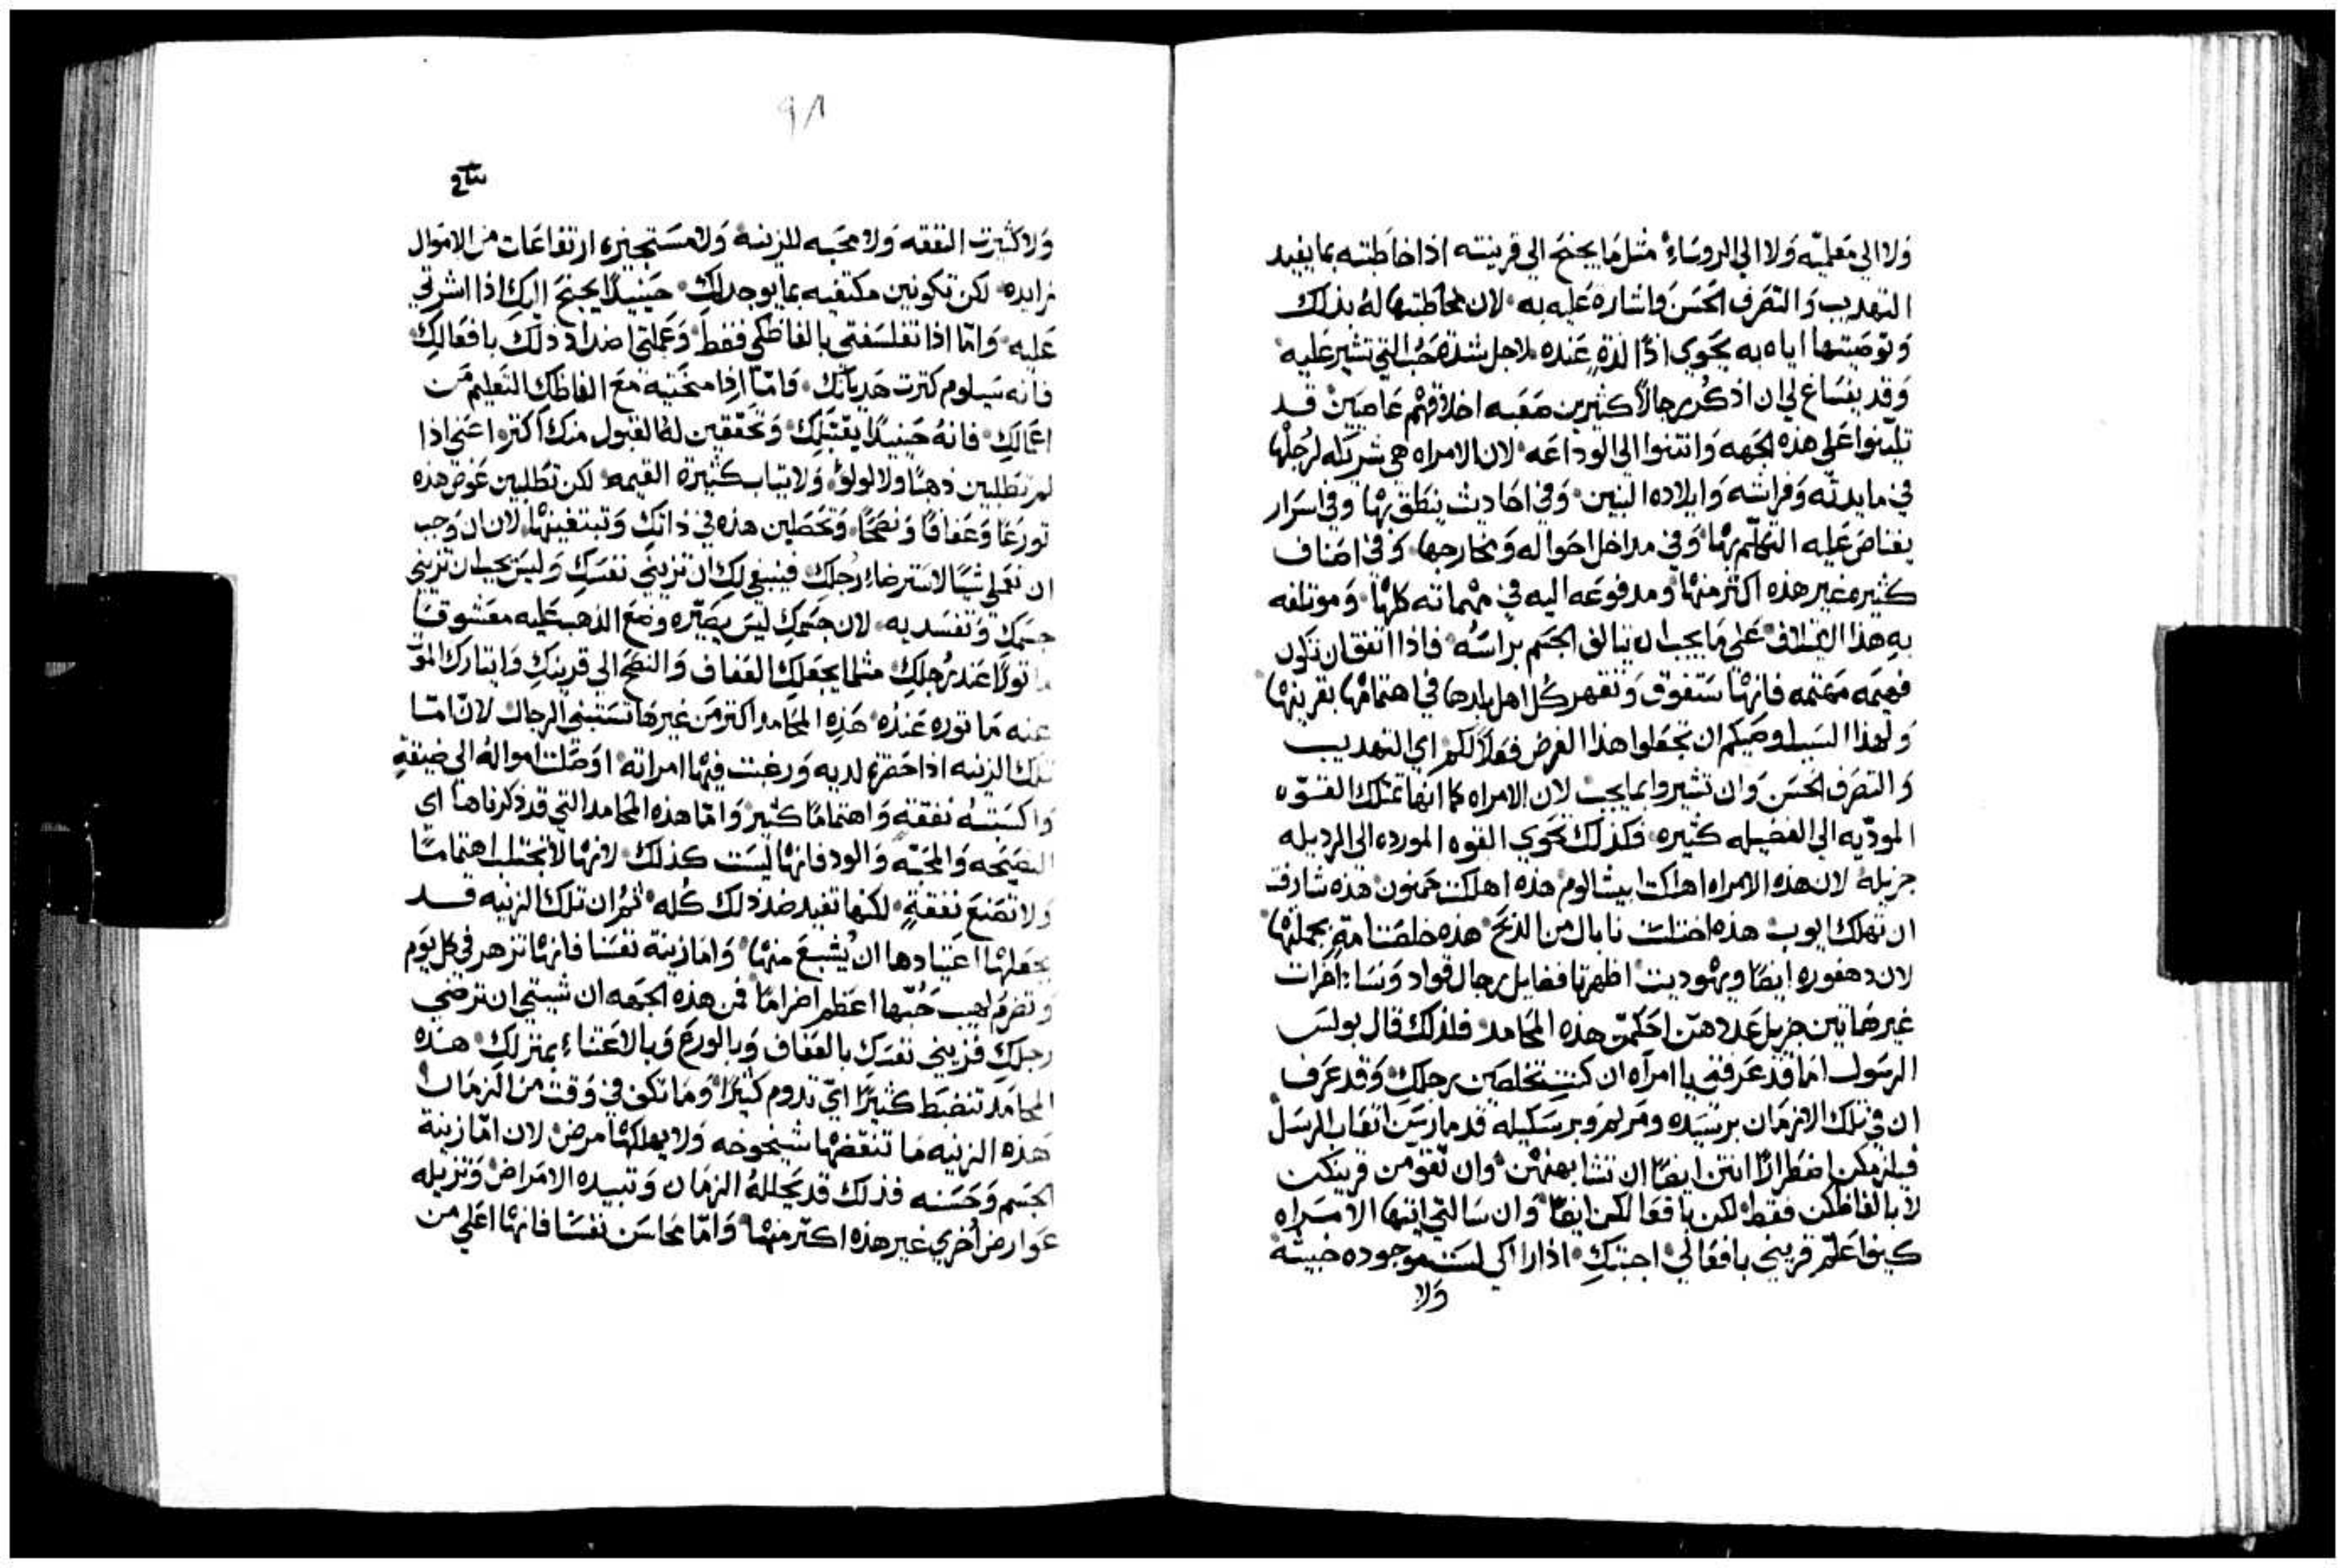 ولا الي معلميه ولا الي الروساء مثل ما يجنح الي قرينته اذا خاطبته بما يفيد
التهديب والتصرف الحسن واشاره عليه به لان مخاطبتها له بذلك
وتوصيتها اياه به يحوي اذًا لذةً عنده لاجل شدة حب التي تشير عليه
وقد ينساغ لي ان اذكر رجالاً كثيرين صعبه اخلاقهم عاصيين قد
تليّنوا علي هذه الجهه وانتنوا الي الوداعه لان الامراه هي شريكه لرجلها
في مايدته وفراشه وايلاده البنين وفي احاديث ينطق بها وفي اسرار
يعتاص عليه التكلم بها وفي مداخل احواله ومخارجها وفي اصناف
كثيره غير هذه اكثر منها ومدفوعه اليه في مهماته كلها وموتلفه
به هذا الايتلاف علي ما يجب ان يتالف الجسم براسه فاذا اتفق ان تكون
فهيمه مهتمه فانها ستفوق وتقهر كل اهل بلدها في اهتمامها بقرينها
ولهذا السبب اوصيكم ان تجعلوا هذا الغرض فعلاً لكم اي التهديب
والتصرف الحسن وان تشيروا بما يجب لان الامراه كما انها تمتلك القوه
المودّيه الي الفضيله كثيره فكذلك تحوي القوه الموردة الي الرديله
جزيلة لان هذه الامراه اهلكت ابيشالوم هذه اهلكت حمنون هذه شارفت
ان تهلك ايوب هذه اختلست نابال من الدبح هذه خلصت امةٍ بجملتها
لان دهفوره ايضًا ويهوديت اظهرتا فضايل رجال قواد ونساء اخرات
غير هاتين جزيل عددهن احكمن هذه المحامد فلذلك قال بولس
الرسول اما قد عرفتي يا امراه ان كنتِ تخلصين رجلكِ وقد عرف
ان في تلك الازمان برسيده ومريم وبرسكيله قد مارسن اتعاب الرسل
فيلزمكن اضطرارًا انتن ايضًا ان تتشابهن بهن وان تقومن قرينكن
لا بالفاظكن فقط لكن بافعالكن ايضًا وان سالتي ايتها الامراه
كيف اعلّم قريني بافعالي اجبتكِ اذا راكي لست موجوده خبيثة
ولا
٩٨
ولا كثيرت النفقه ولا محبه للزينه ولا مستجيزه ارتفاعات من الاموال
زايده لكن تكونين مكتفيه بما يوجد لكِ حينيذٍ يجنح اليك اذا اشرتي
عليه واما اذا تفلسفتي بالفاظكي فقط وعملتي اضداد ذلك بافعالكِ
فانه سيلوم كترت هديانك فاما اذا منحتيه مع الفاظك التعليم من
اعمالكِ فانه حينيذٍ يقتبلكِ وتحققين له القبول منك اكثر اعني اذا
لم تطلبين ذهبًا ولا لولوٌ ولا تياب كثيرة القيمه لكن تطلبين عوض هذه
تورعًا وعفافًا ونصحًا وتحصلين هذه في ذاتكِ وتبتغينها لان ان وجب
ان تعملي شيًا لاسترضاء رجلك فينبغي لكِ ان تزيني نفسكِ وليس يجب ان تزيني
جسمك وتفسديه لان جسمكِ ليس يصيّره وضع الذهب عليه معشوقًا
عند رجلكِ مثلما يجعلكِ العفاف والنصح الي قرينكِ وايتارك الموت
عنه ما توره عنده هذه المحامد اكتر من غيرها تستبي الرجال لان امّا
تلك الزينه اذا حضرت لديه ورغبت فيها امراته اوصلت امواله الي ضيقةٍ
واكسبته نفقةٍ واهتمامًا كثير واما هذه المحامد التي قد ذكرناها اي
النصيحه والمحبّه والود فانها ليست كذلك لانها لا تجتلب اهتمامًا
ولا تصنع نفقةٍ لكنها تفيد ضد ذلك كله ثم ان تلك الزينه قد
يجعلها اعتيادها ان يُشبع منها واما زينة نفسنا فانها تزهر في كل يوم
وتضرم لهيب حبّها اعظم اضرامًا فمن هذه الجهه ان شيتي ان ترضي
رجلكِ فزيني نفسك بالعفاف وبالورع وبالاعتناء بمنزلكِ هذه
المحامد تنضبط كثيرًا اي تدوم كثيرًا وما تكف في وقت من الزمان
هذه الزينه ما تنقصها شيخوخه ولا يهلكها مرض لان امّا زينة
الجسم وحسنه فذلك قد يحللهُ الزمان وتبيده الامراض وتزيله
عوارض اخري غير هذه اكتر منها وامّا محاسن نفسنا فانها اعلي من